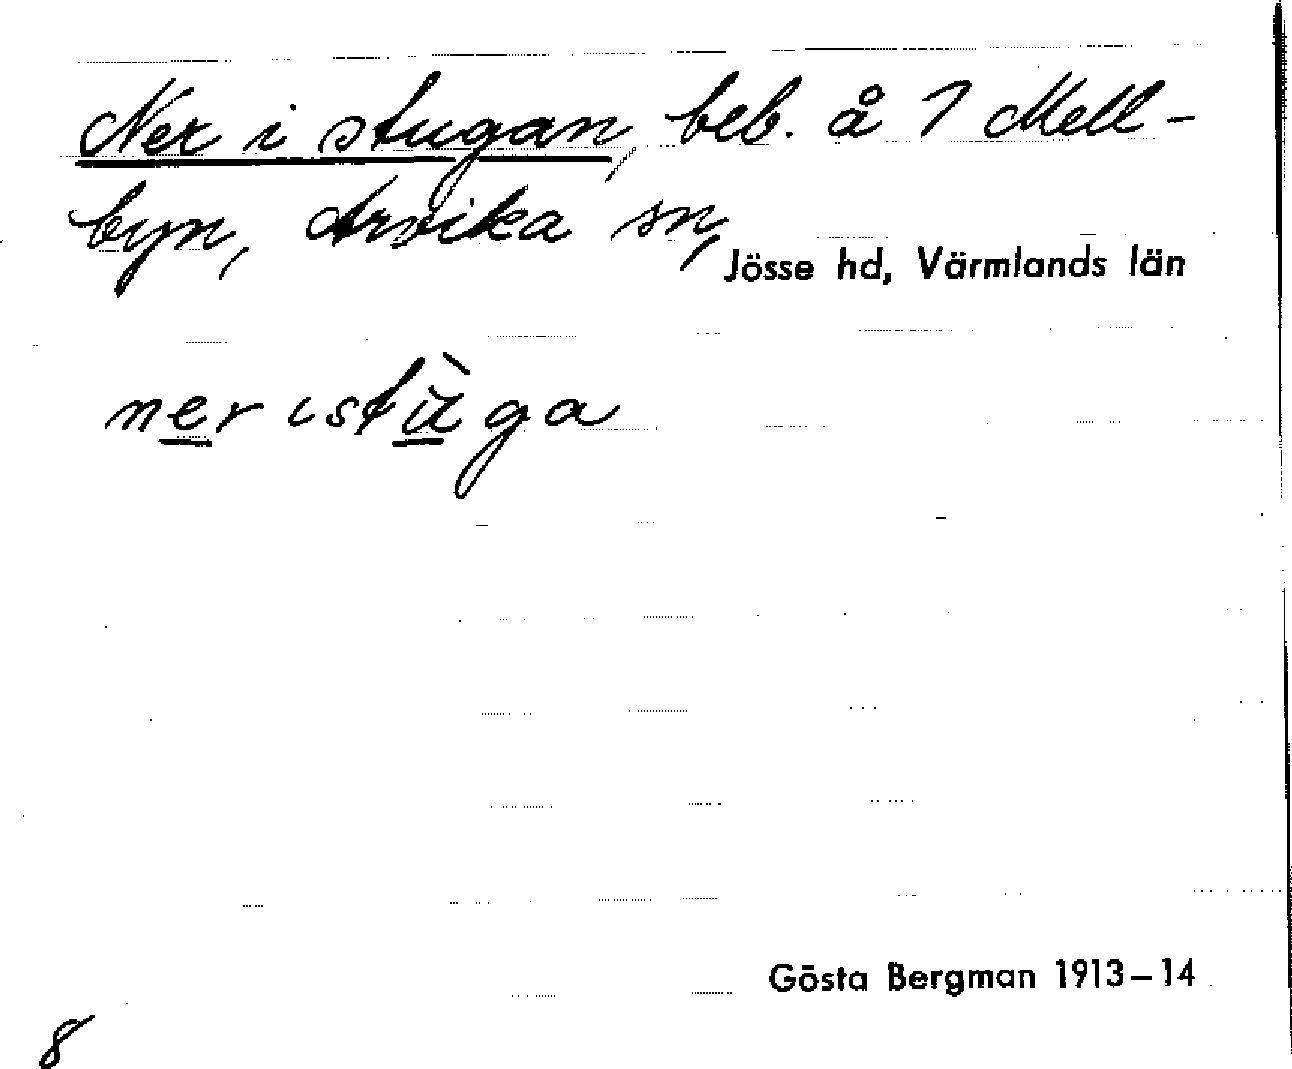 Ner i stugan, beb. å 7 Mell-
byn, Arvika sn,
Jösse hd, Värmlands län
ner istùga
Gösta Bergman 1913–14
8